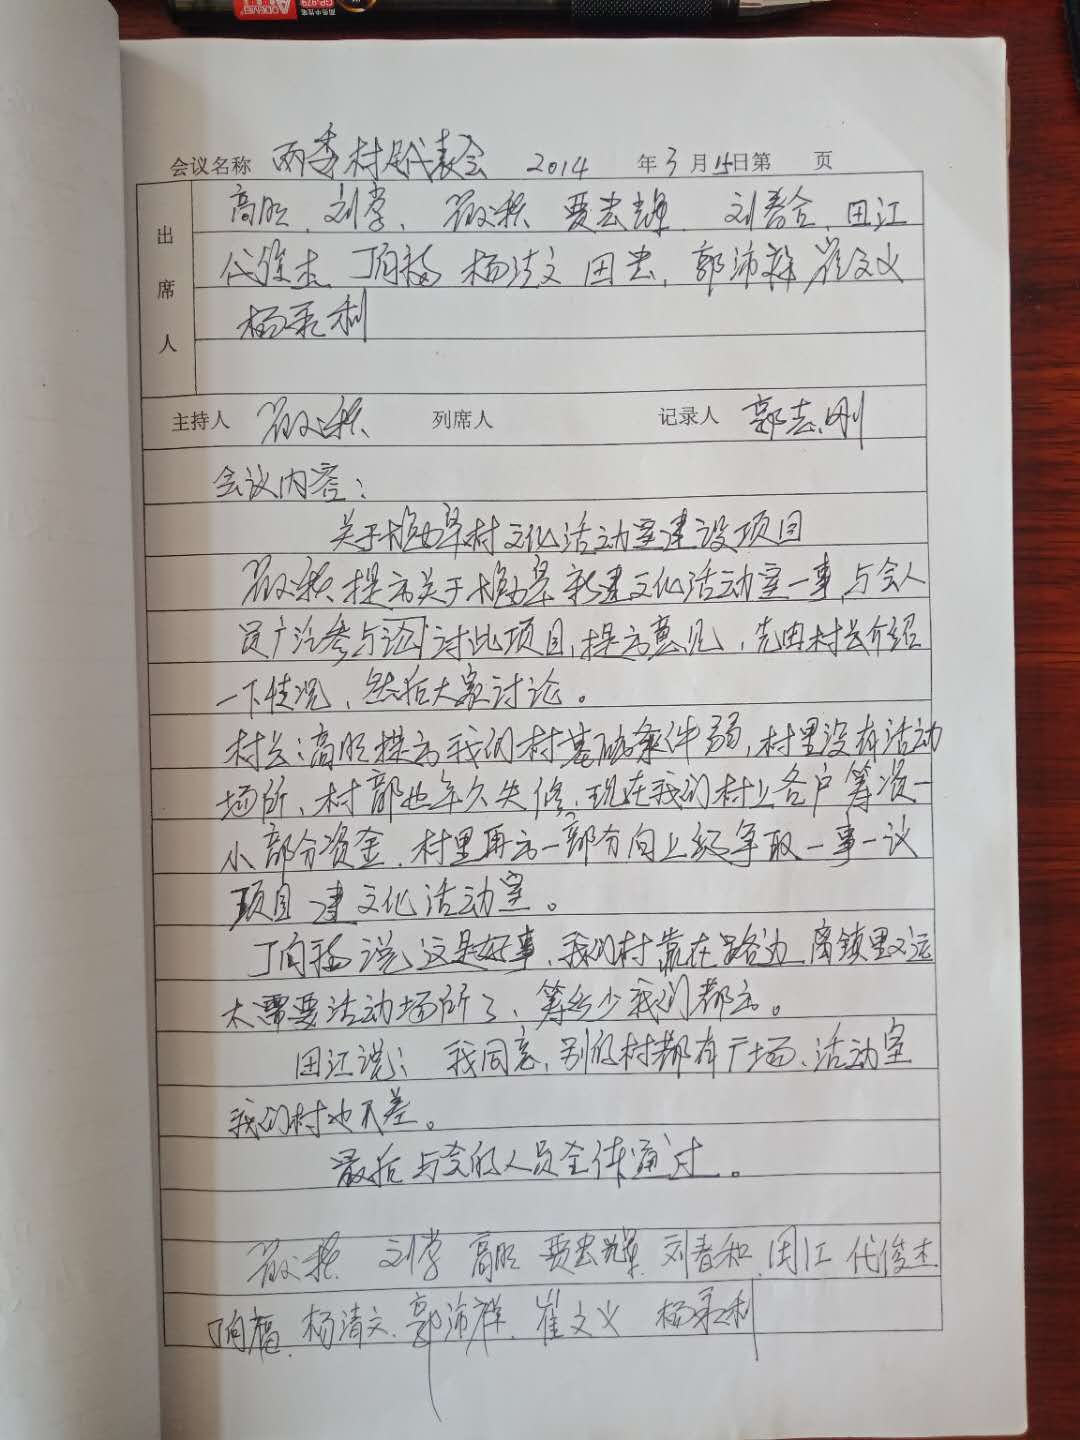 会议名称 两委村民代表会 2014 年3月15日第 页
出席人
高旺、刘学、 贾宏辉、刘春合、田江
代俊杰、丁向福 杨清文 田宏、郭沛祥 崔文义
杨承利
主持人 列席人 记录人 郭志刚
会议内容：
关于 村文化活动室建设项目
提出关于 新建文化活动室一事，与会人
员广泛参与讨论此项目，提出意见，先由村长介绍
一下情况，然后大家讨论。
村长：高旺提出我们村基础条件弱，村里没有活动
场所、村部也年久失修，现在我们村上各户筹资一
小部分资金，村里再出一部分向上级争取一事一议
项目建文化活动室。
丁向福说这是好事，我们村靠在路边离镇里又远
太需要活动场所了，筹多少我们都出。
田江说：我同意，别的村都有广场、活动室
我们村也不差。
最后与会的人员全体通过。
刘学 高旺 贾宏辉 刘春和 田江 代俊杰
丁向福、杨清文、郭沛祥、崔文义 杨承利